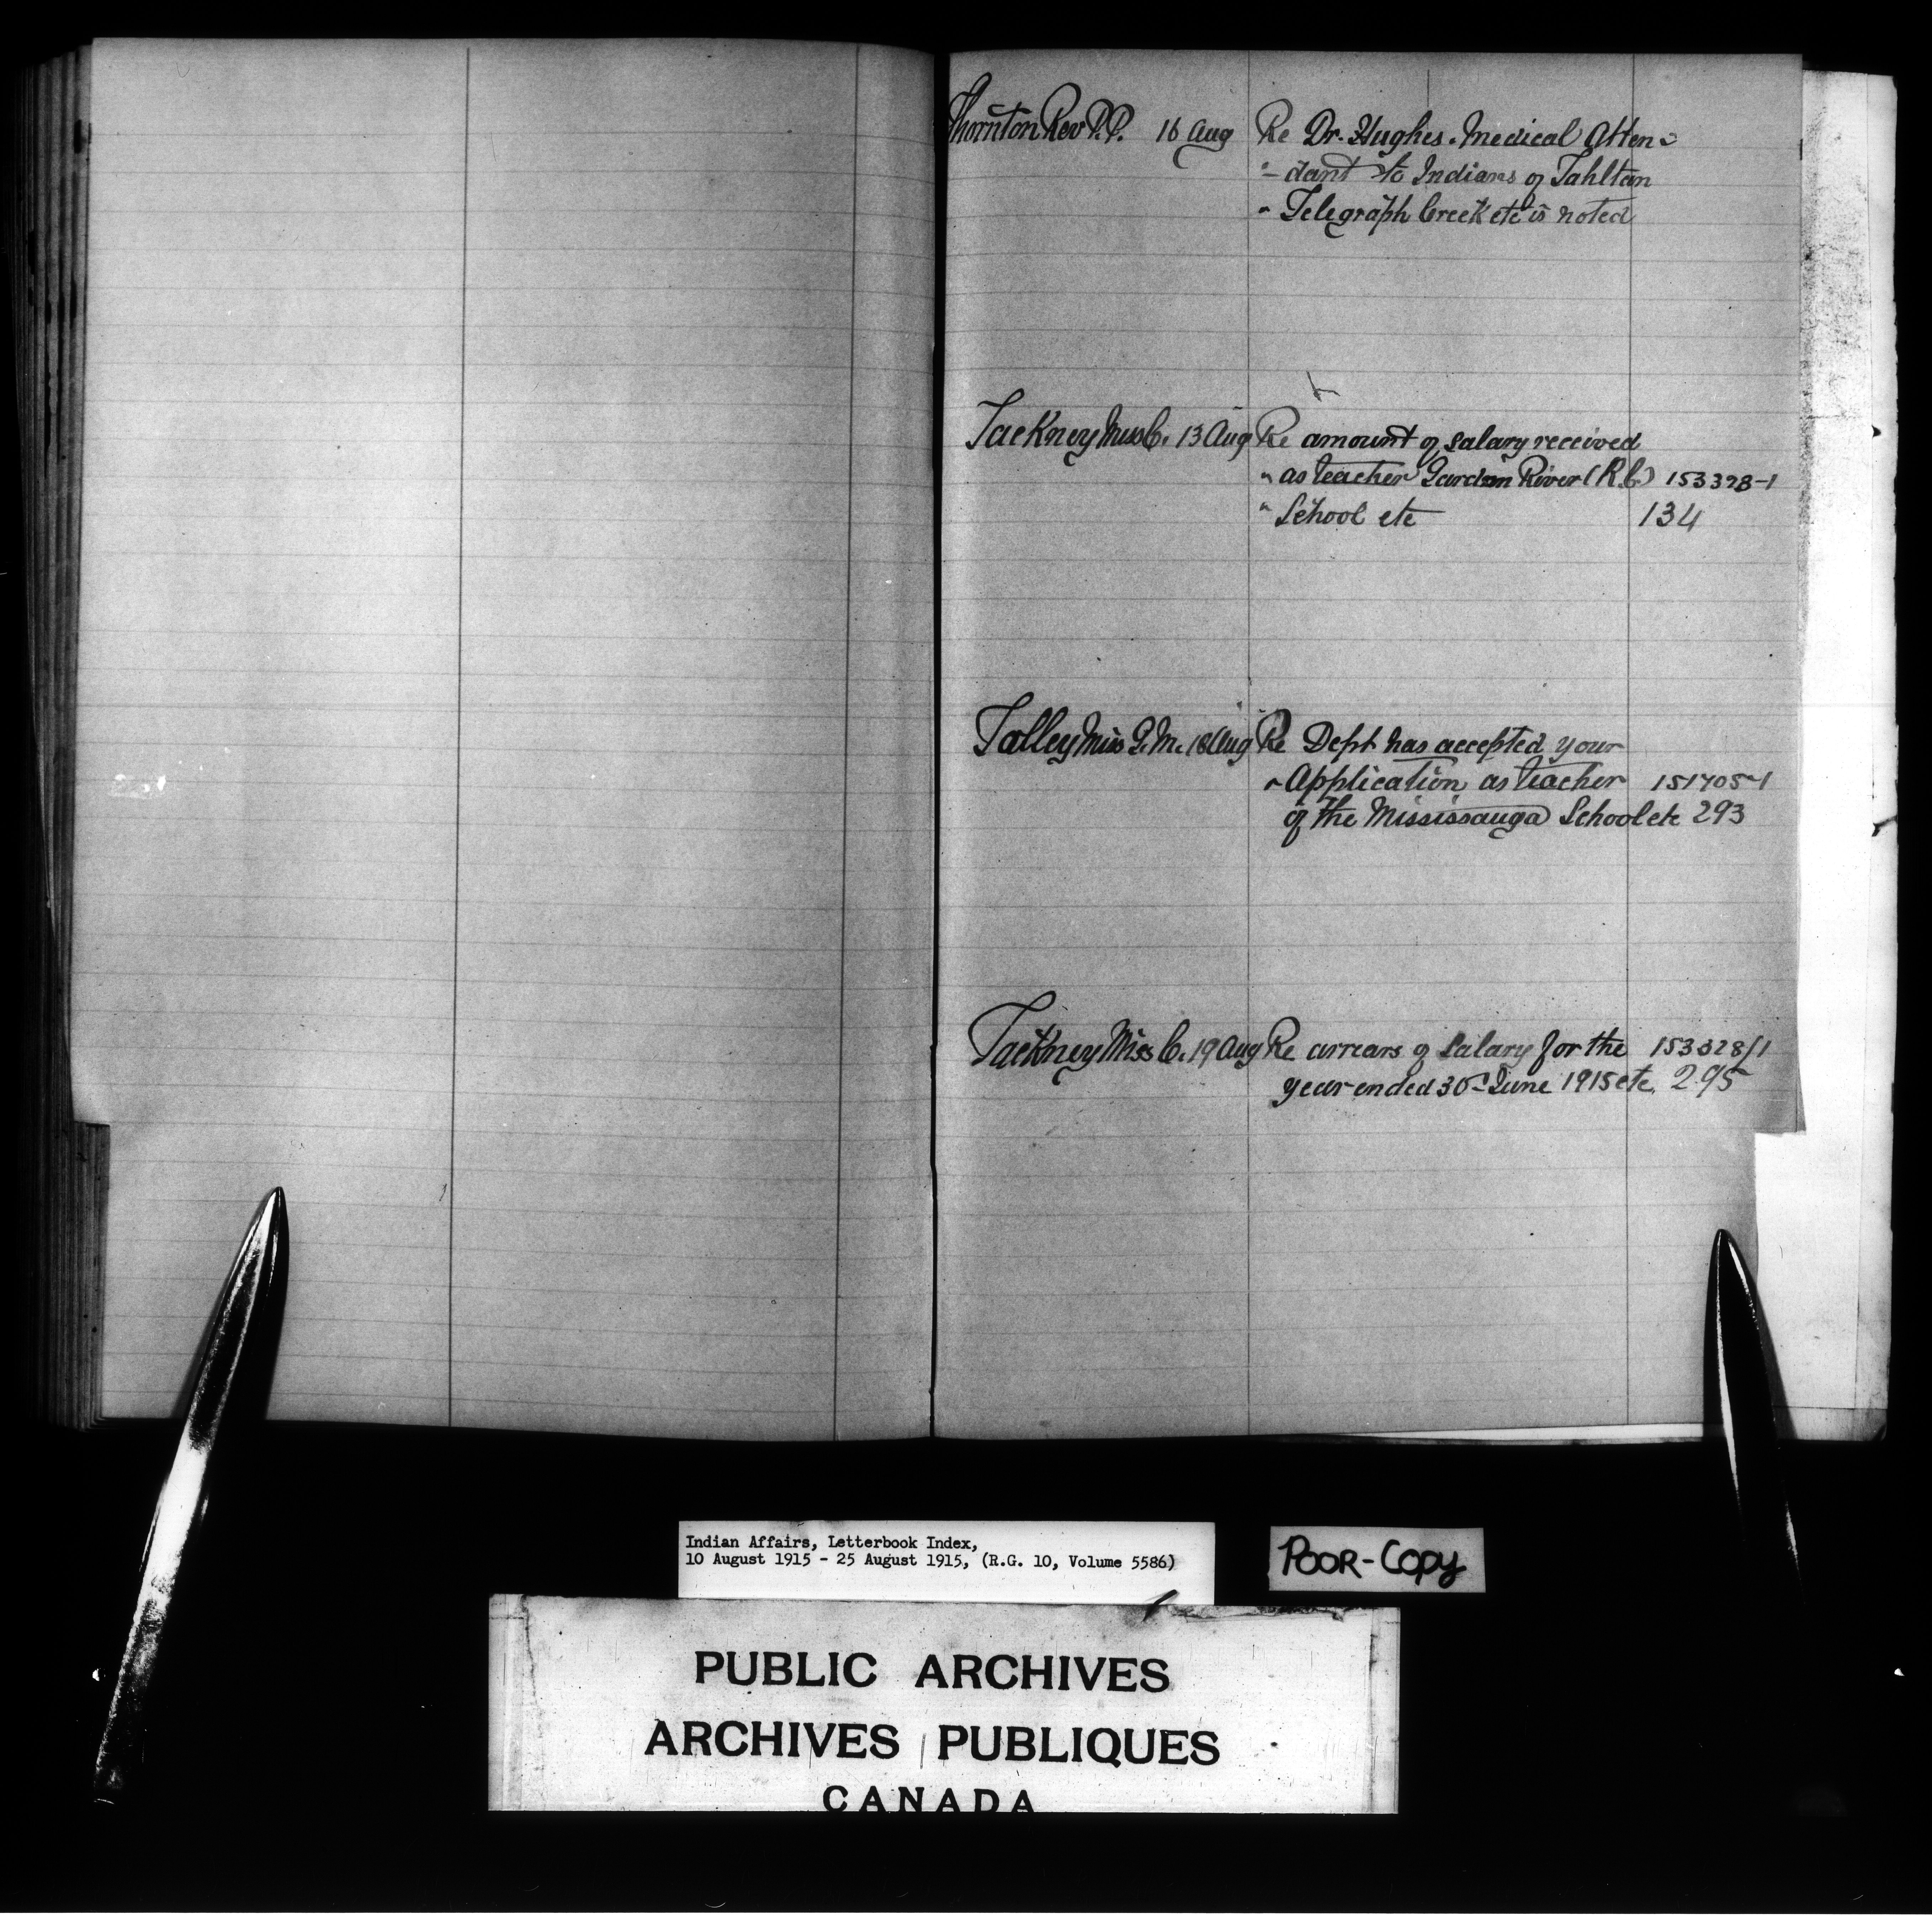 Thornton Rev P.P. 16 Aug Re Dr. Hughes. Medical Atten-
"- dant to Indians of Tahltan
" Telegraph Creek etc is noted
Tackney Miss C. 13 Aug Re amount of salary received
" as teacher Garden River (R.C.) 153328-1
" School etc 134
Talley Miss G.M. 18 Aug Re Dept has accepted your
" Application as teacher 151705-1
of the Mississauga School etc 293
Tackney Miss C. 19 Aug Re arrears of Salary for the 153328/1
year ended 30 June 1915 etc. 295
Indian Affairs, Letterbook Index,
10 August 1915 - 25 August 1915, (R.G. 10, Volume 5586)
POOR-COPY
PUBLIC ARCHIVES
ARCHIVES PUBLIQUES
CANADA